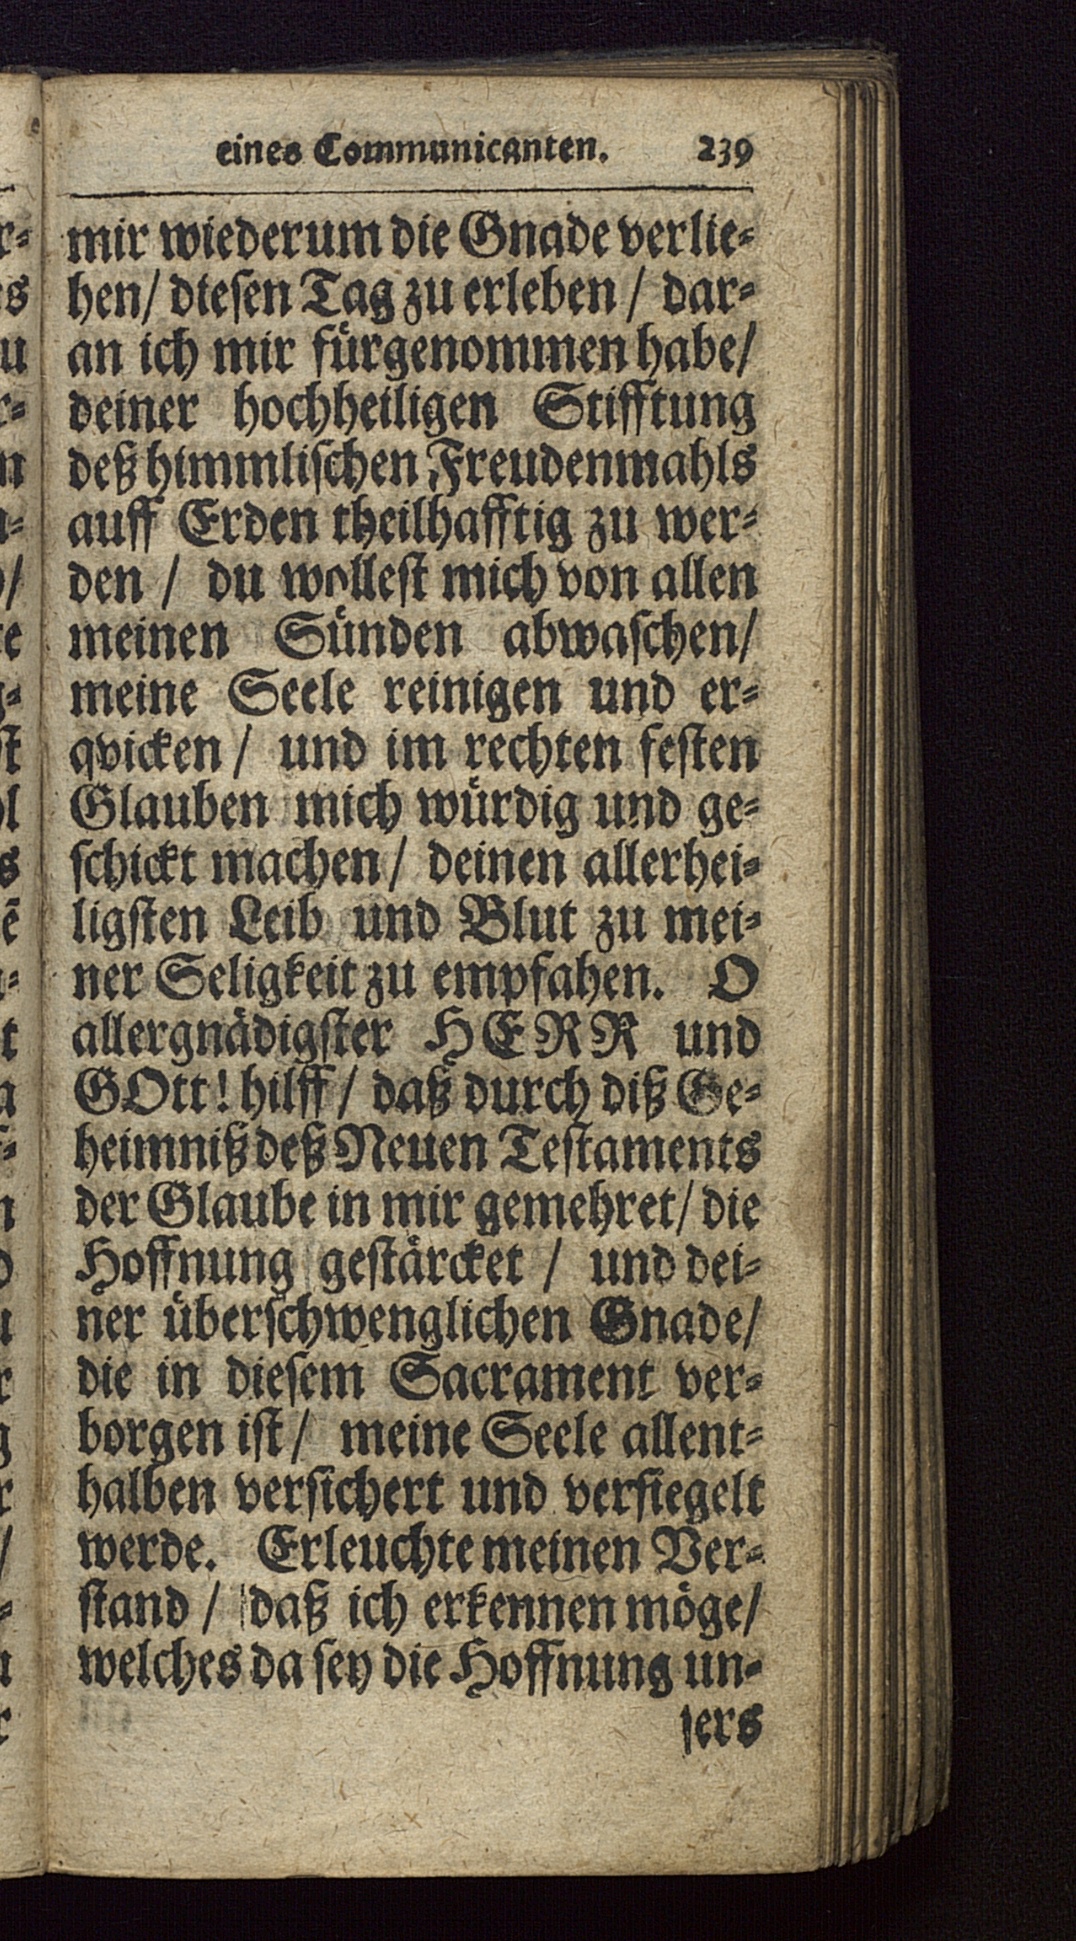 eines Communicanten. 239
mir wiederum die Gnade verlie-
hen/ diesen Tag zu erleben / dar-
an ich mir fürgenommen habe/
deiner hochheiligen Stifftung
deß himmlischen Freudenmahls
auff Erden theilhafftig zu wer-
den / du wollest mich von allen
meinen Sünden abwaschen/
meine Seele reinigen und er-
qvicken / und im rechten festen
Glauben mich würdig und ge-
schickt machen/ deinen allerhei-
ligsten Leib und Blut zu mei-
ner Seligkeit zu empfahen. O
allergnädigster HERR und
GOtt! hilff / daß durch diß Ge-
heimniß deß Neuen Testaments
der Glaube in mir gemehret/ die
Hoffnung gestärcket / und dei-
ner überschwenglichen Gnade/
die in diesem Sacrament ver-
borgen ist/ meine Seele allent-
halben versichert und versiegelt
werde. Erleuchte meinen Ver-
stand / daß ich erkennen möge/
welches da sey die Hoffnung un-
sers